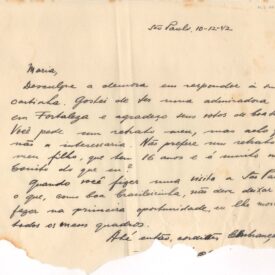 São Paulo, 10-12-42
Maria,
Desculpe a demora em responder à su
cartinha. Gostei de ter uma admiradora
em Fortaleza e agradeço seus votos de boa
Você pede um retrato meu, mas acho
não a interessaria. Não prefere um retrato
meu filho, que tem 16 anos e é muito m
bonito do que eu
Quando você fizer uma visita a São Pa
o que, como boa brasileirinha, não deve deixar
fazer na primeira oportunidade, eu lhe mos
todos os meus quadros.
Até então, cordiaes